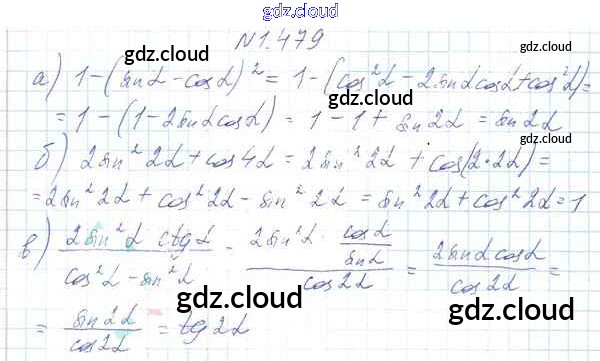 gdz.cloud
№1.479
gdz.cloud gdz.cloud
а) 1-(sinα-cosα)² = 1-(cos²α-2sinαcosα+cos²α)=
= 1-(1-2sinαcosα) = 1-1+ sin2α = sin2α
gdz.cloud gdz.cloud
б) 2sin²2α+cos4α = 2sin²2α + cos(2·2α)=
=2sin²2α + cos²2α - sin²2α = sin²2α+cos²2α=1
gdz.cloud
в) (2sin²α ctgα)/(cos²α-sin²α) = (2sin²α · cosα/sinα)/(cos2α) = (2sinαcosα)/(cos2α) =
gdz.cloud gdz.cloud
= sin2α/cos2α = tg2α
gdz.cloud